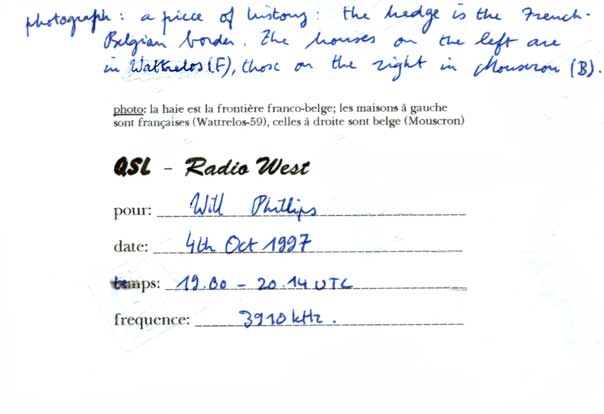 photograph: a piece of history: the hedge is the French-
Belgian border. The houses on the left are
in Wattrelos (F), those on the right in Mouscron (B).
photo: la haie est la frontière franco-belge; les maisons à gauche
sont françaises (Wattrelos-59), celles à droite sont belge (Mouscron)
QSL - Radio West
pour: Will Phillips
date: 4th Oct 1997
temps: 19.00 - 20.14 UTC
frequence: 3910 kHz.